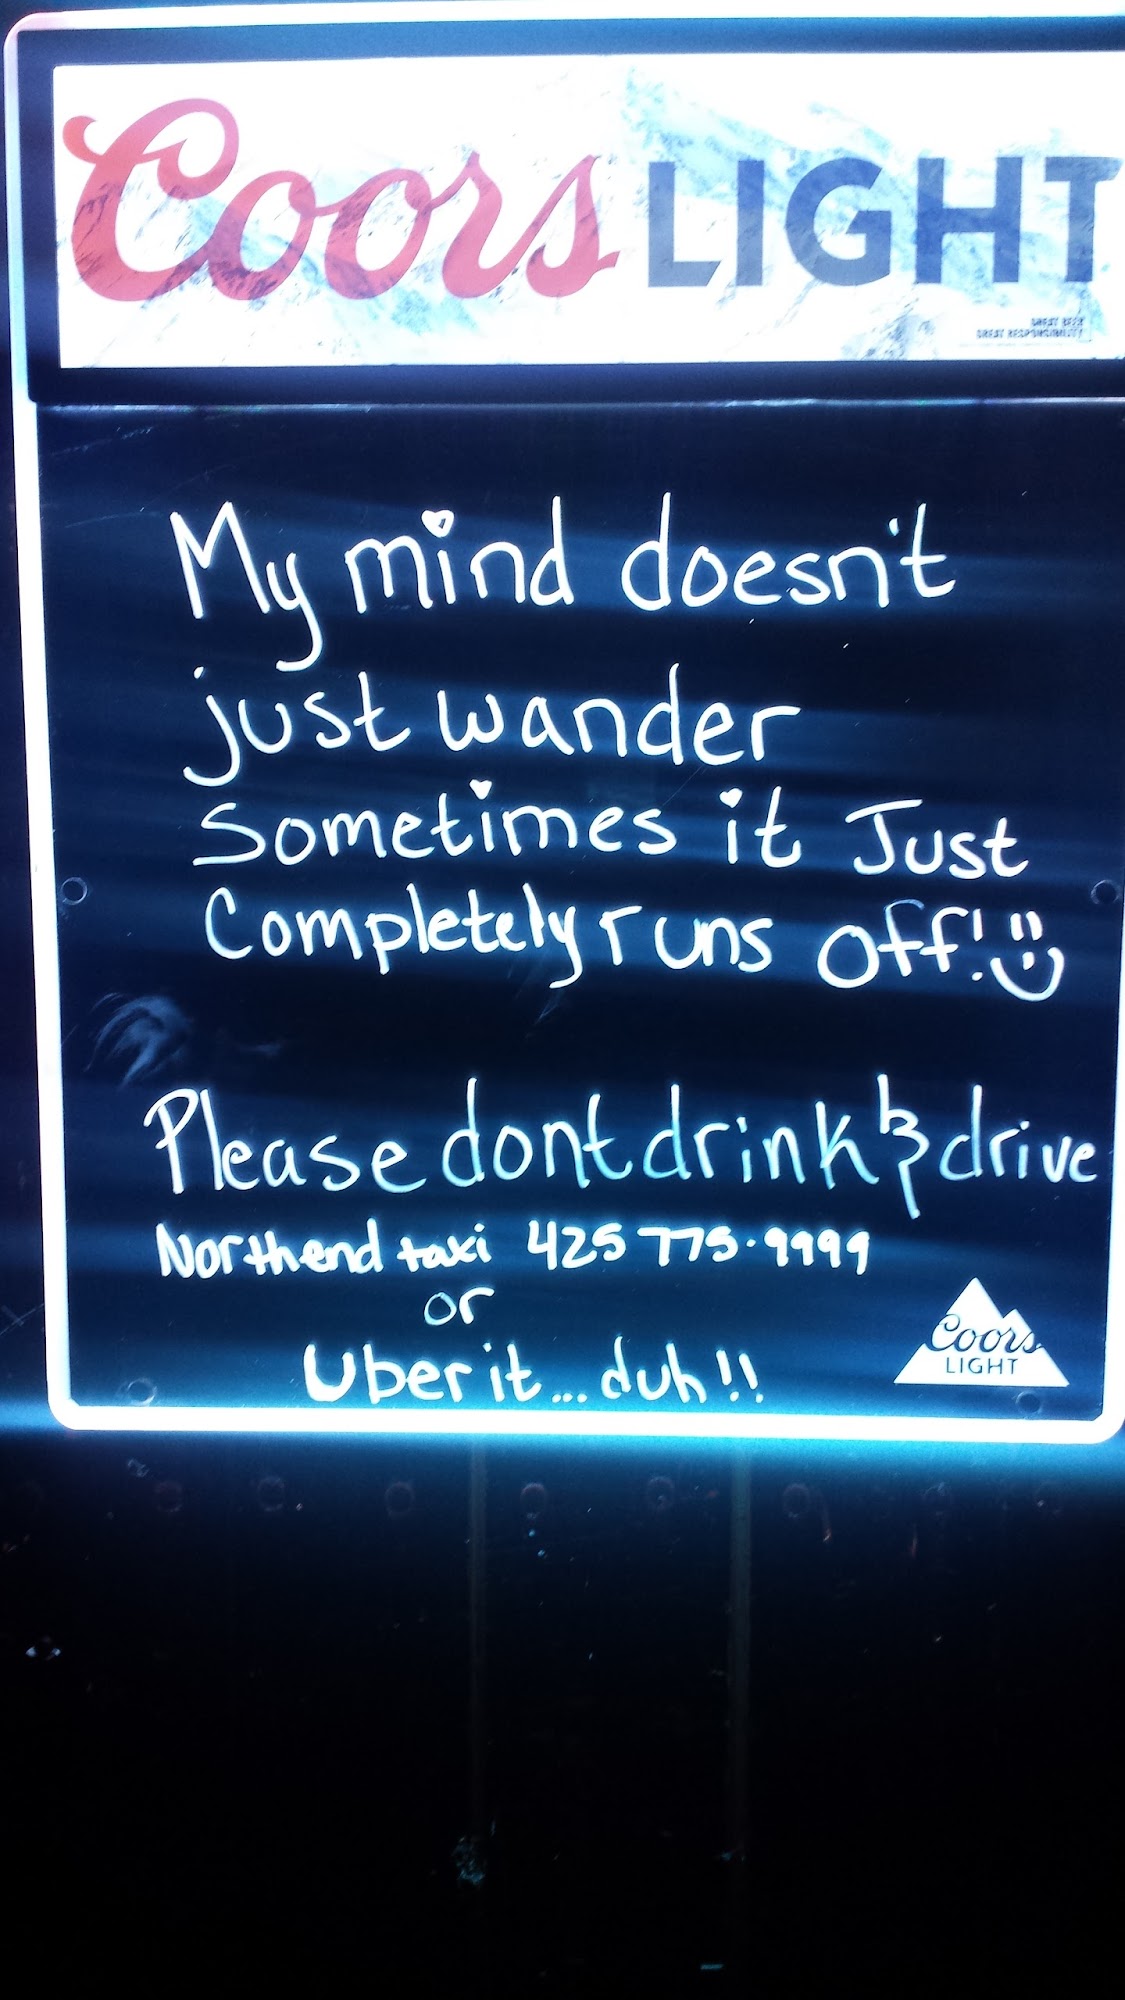 Coors LIGHT
GREAT BEER
GREAT RESPONSIBILITY
My mind doesn't
just wander
Sometimes it Just
Completely runs off!
Please dont drink & drive
Northend taxi 425 775-9999
or
Uber it... duh!!
Coors
LIGHT